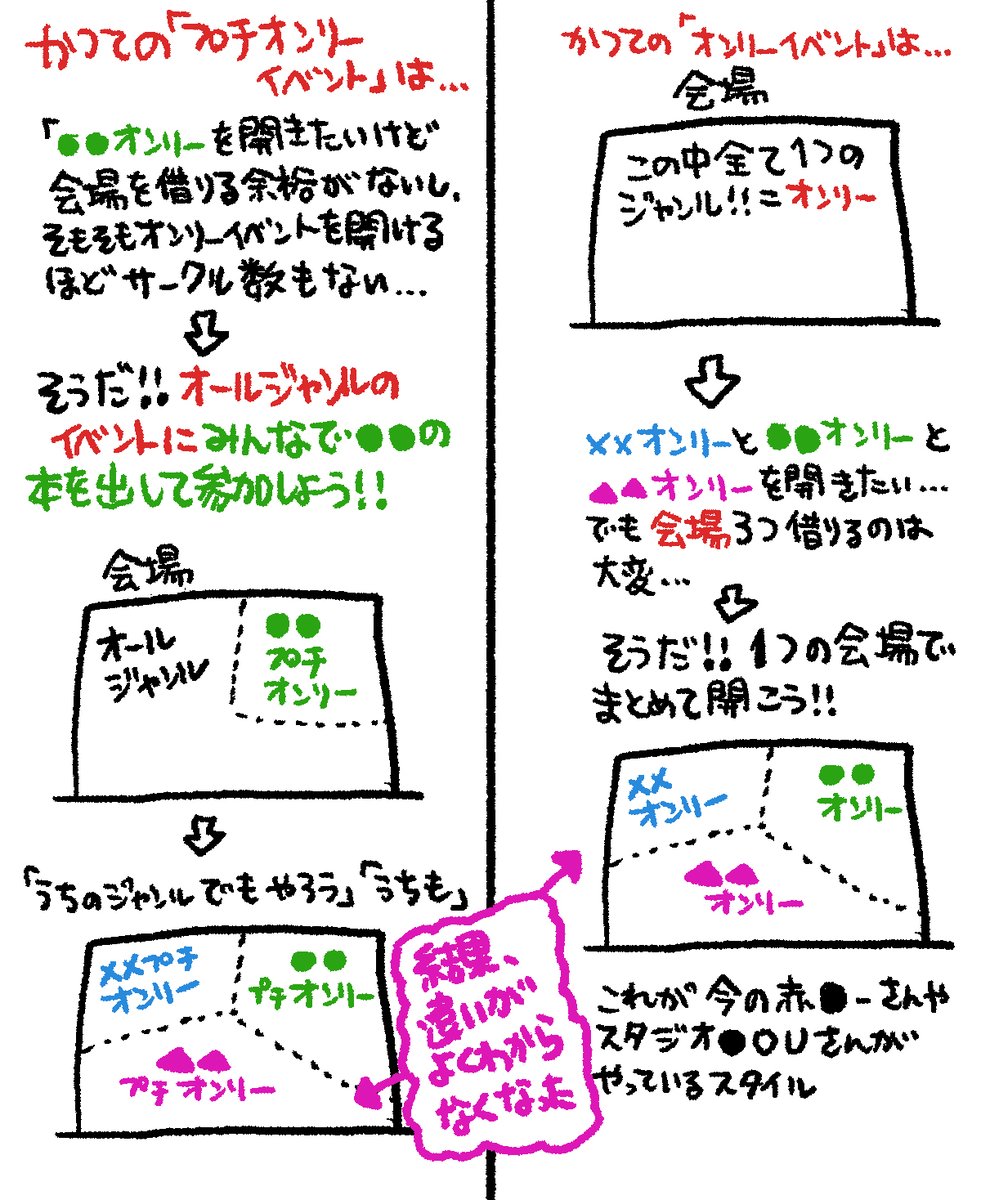 かつての「プチオンリー
イベント」は…
「●●オンリーを開きたいけど
会場を借りる余裕がないし、
そもそもオンリーイベントを開ける
ほどサークル数もない…
そうだ!!オールジャンルの
イベントにみんなで●●の
本を出して参加しよう!!
会場
オール
ジャンル
●●
プチ
オンリー
「うちのジャンルでもやろう」「うちも」
××プチ
オンリー
●●
プチオンリー
▲▲
プチオンリー
結果、
違いが
よくわから
なくなった
かつての「オンリーイベント」は…
会場
この中全て1つの
ジャンル!!=オンリー
××オンリーと●●オンリーと
▲▲オンリーを開きたい…
でも会場3つ借りるのは
大変…
そうだ!!1つの会場で
まとめて開こう!!
××
オンリー
●●
オンリー
▲▲
オンリー
これが今の赤●ーさんや
スタジオ●OUさんが
やっているスタイル